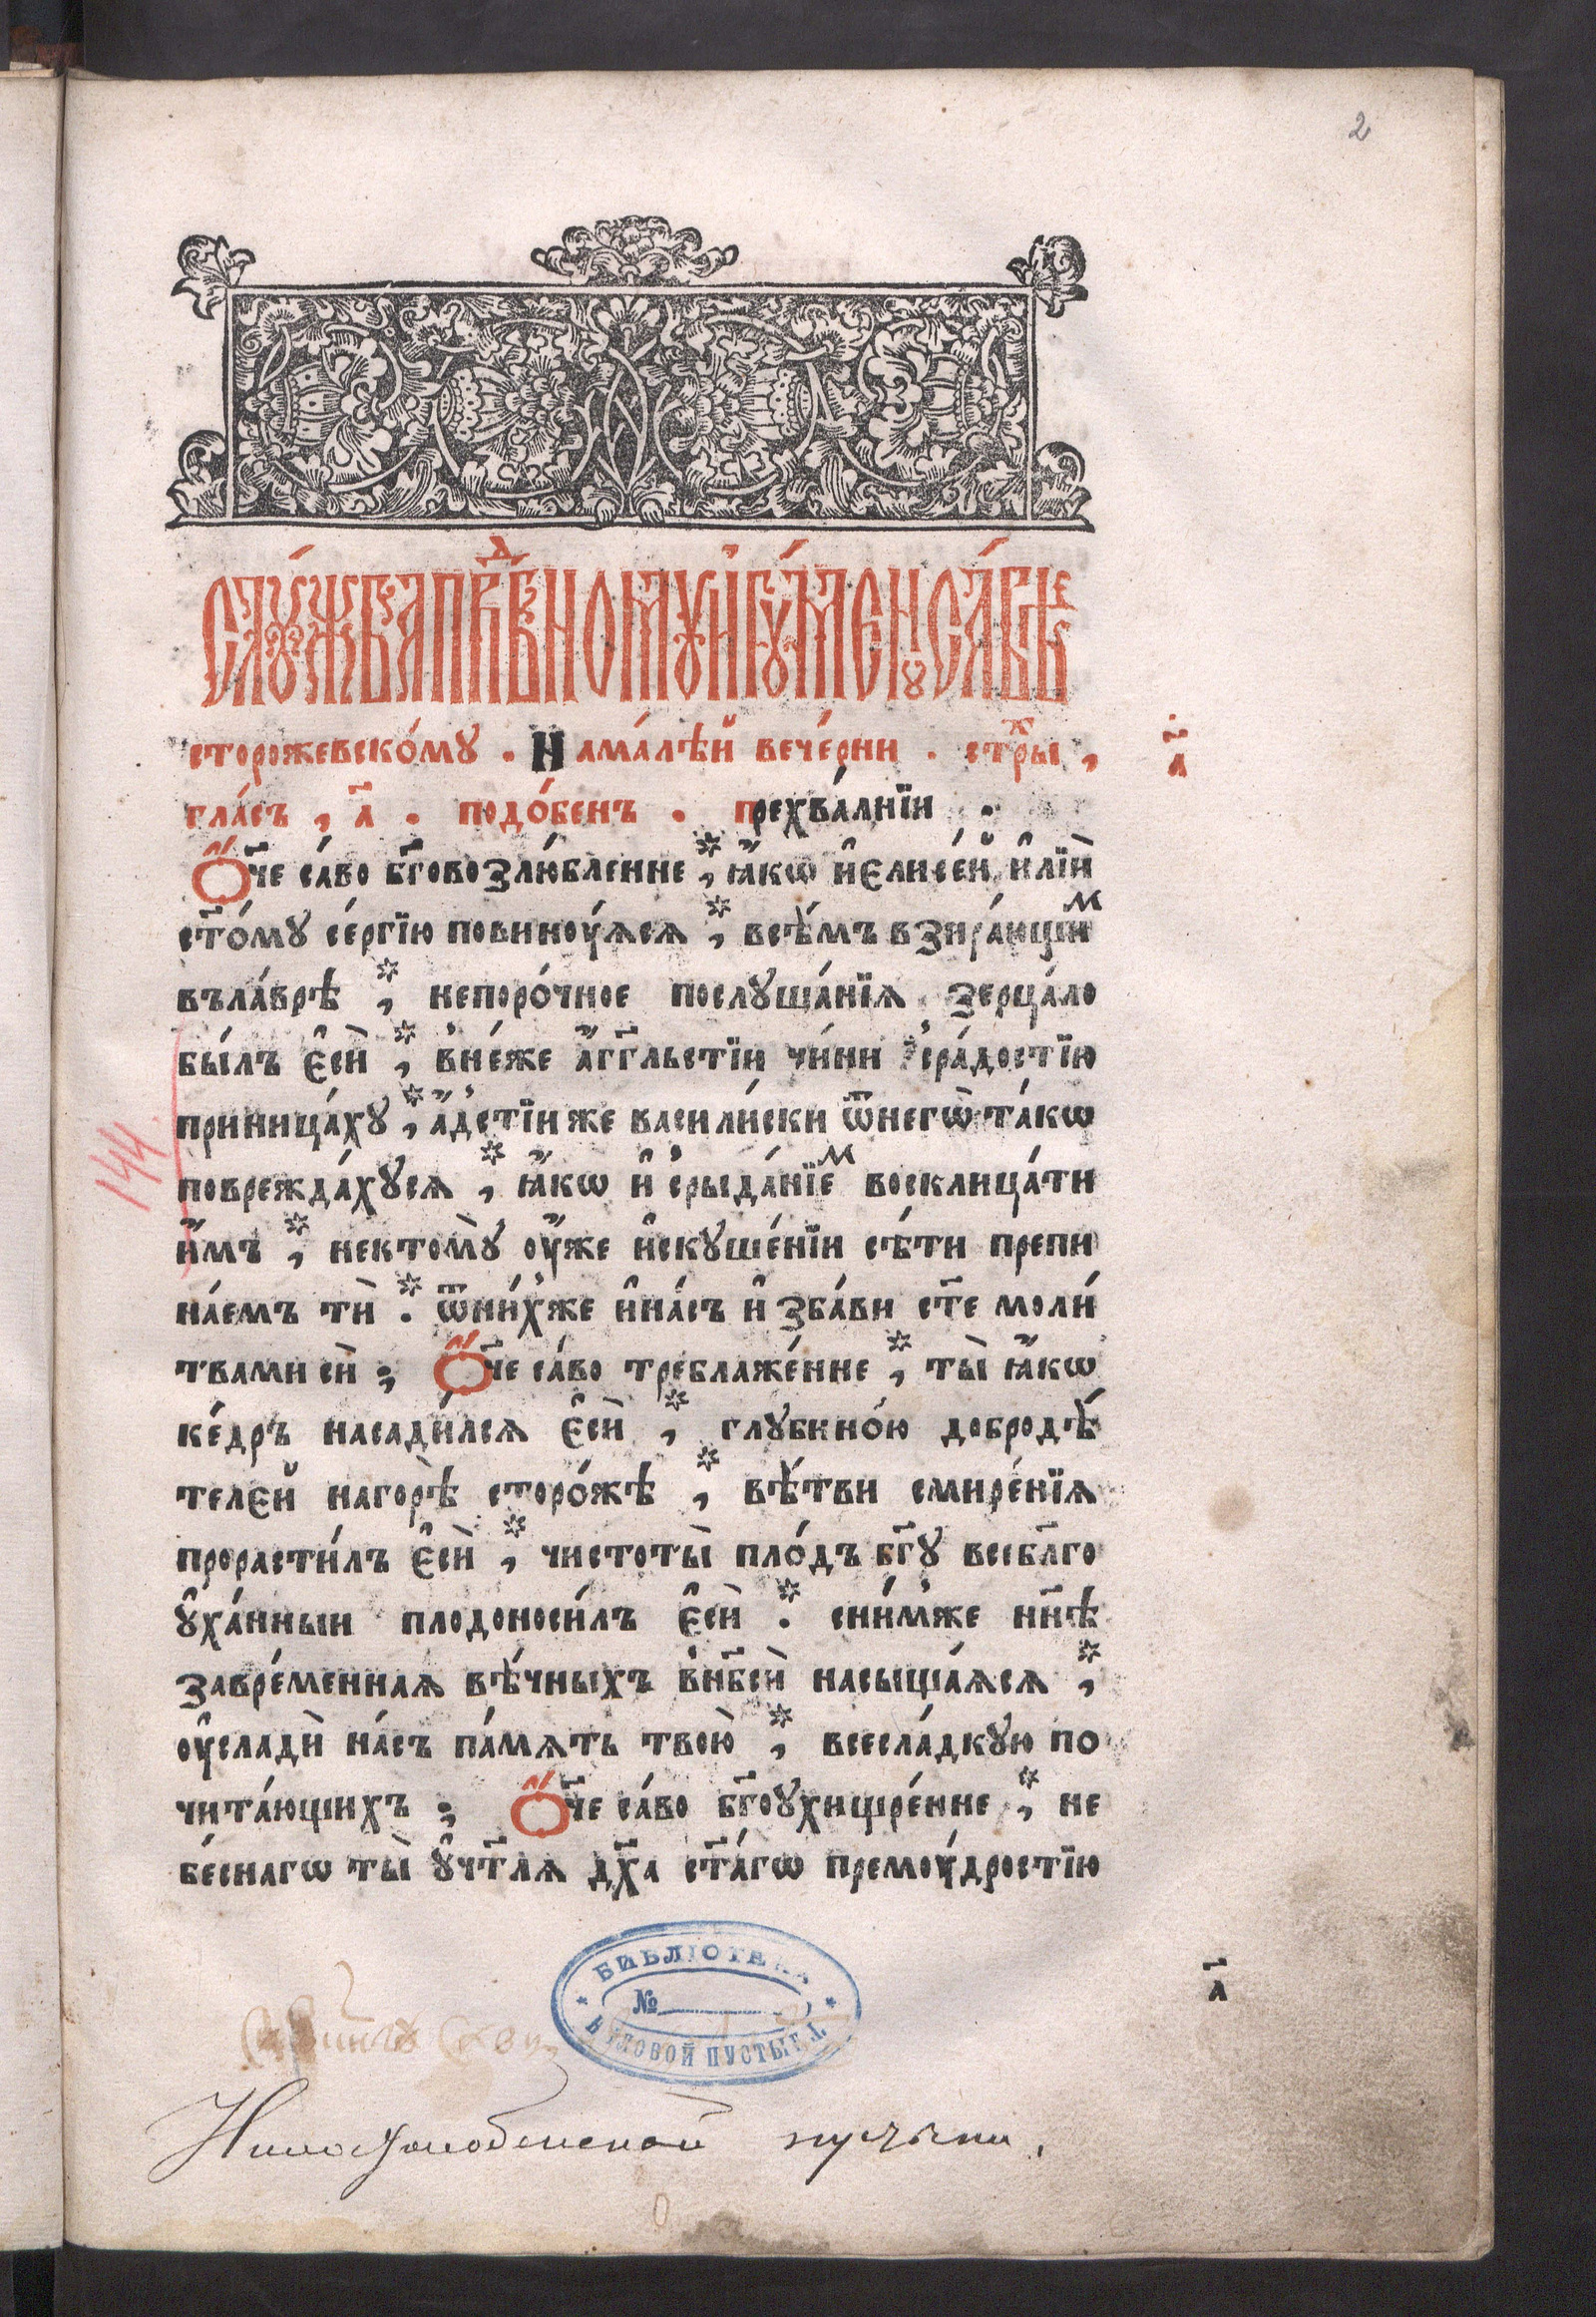 2
СЛꙊ́ЖБА ПРПⷣБНОМꙊ ИГꙊ́МЕНꙊ СА́ВѢ
сторожевско́мꙋ . На ма́лѣй вече́рни . стрⷯы ,
гла́съ , а҃ . подо́бенъ . прехва́лнїи .
а҃
Ѻ҆́ч҃е са́во бг҃овозлю́бленне *, ꙗ҆́кѡ и҆ є҆лисе́й и҆лїѝ
ст҃о́мꙋ се́ргїю повиноу́ѧсѧ *, всѣ́мъ взира́ющиⷨ
въ ла́врѣ *, непоро́чное послꙋша́нїѧ зерца́ло
бы́лъ є҆сѝ *, в̾не́же а҆́гг҃льстїи чи́ни с̾ра́достїю
приница́хꙋ *, а҆́дстїи же васили́ски ѿнегѡ̀ та́кѡ
поврежда́хꙋсѧ *, ꙗ҆́кѡ и҆ с̾рыда́нїеⷨ восклица́ти
и҆̀мъ *, нектомꙋ̀ оу҆́же и҆скꙋше́нїи сѣ́ти препи
на́емъ тѝ *. ѿни́х̾же и҆на́съ и҆зба́ви ст҃е моли́
твами сѝ ; Ѻ҆́ч҃е са́во треблаже́нне *, ты̀ ꙗ҆́кѡ
ке́дръ насади́лсѧ є҆сѝ *, глꙋбино́ю добродѣ́
телей нагорѣ̀ сторо́жѣ *, вѣ́тви смире́нїѧ
прорасти́лъ є҆сѝ *, чистоты̀ пло́дъ бг҃ꙋ всебл҃го
ꙋ҆ха́нный плодоноси́лъ є҆сѝ *. сни́м̾же нн҃ѣ
завре́меннаѧ вѣ́чныхъ в̾нб҃сѝ насыща́ѧсѧ *,
оу҆сладѝ на́съ па́мѧть твою̀ *, всесла́дкꙋю по
чита́ющихъ ; Ѻ҆́ч҃е са́во бг҃оухищре́нне *, не
бе́снагѡ ты̀ ꙋ҆чт҃лѧ дх҃а ст҃а́гѡ премоу́дростїю
144
а҃
БИБЛІОТЕКА
№
НИЛОВОЙ ПУСТЫНИ
Нилостолобенской пустыни.